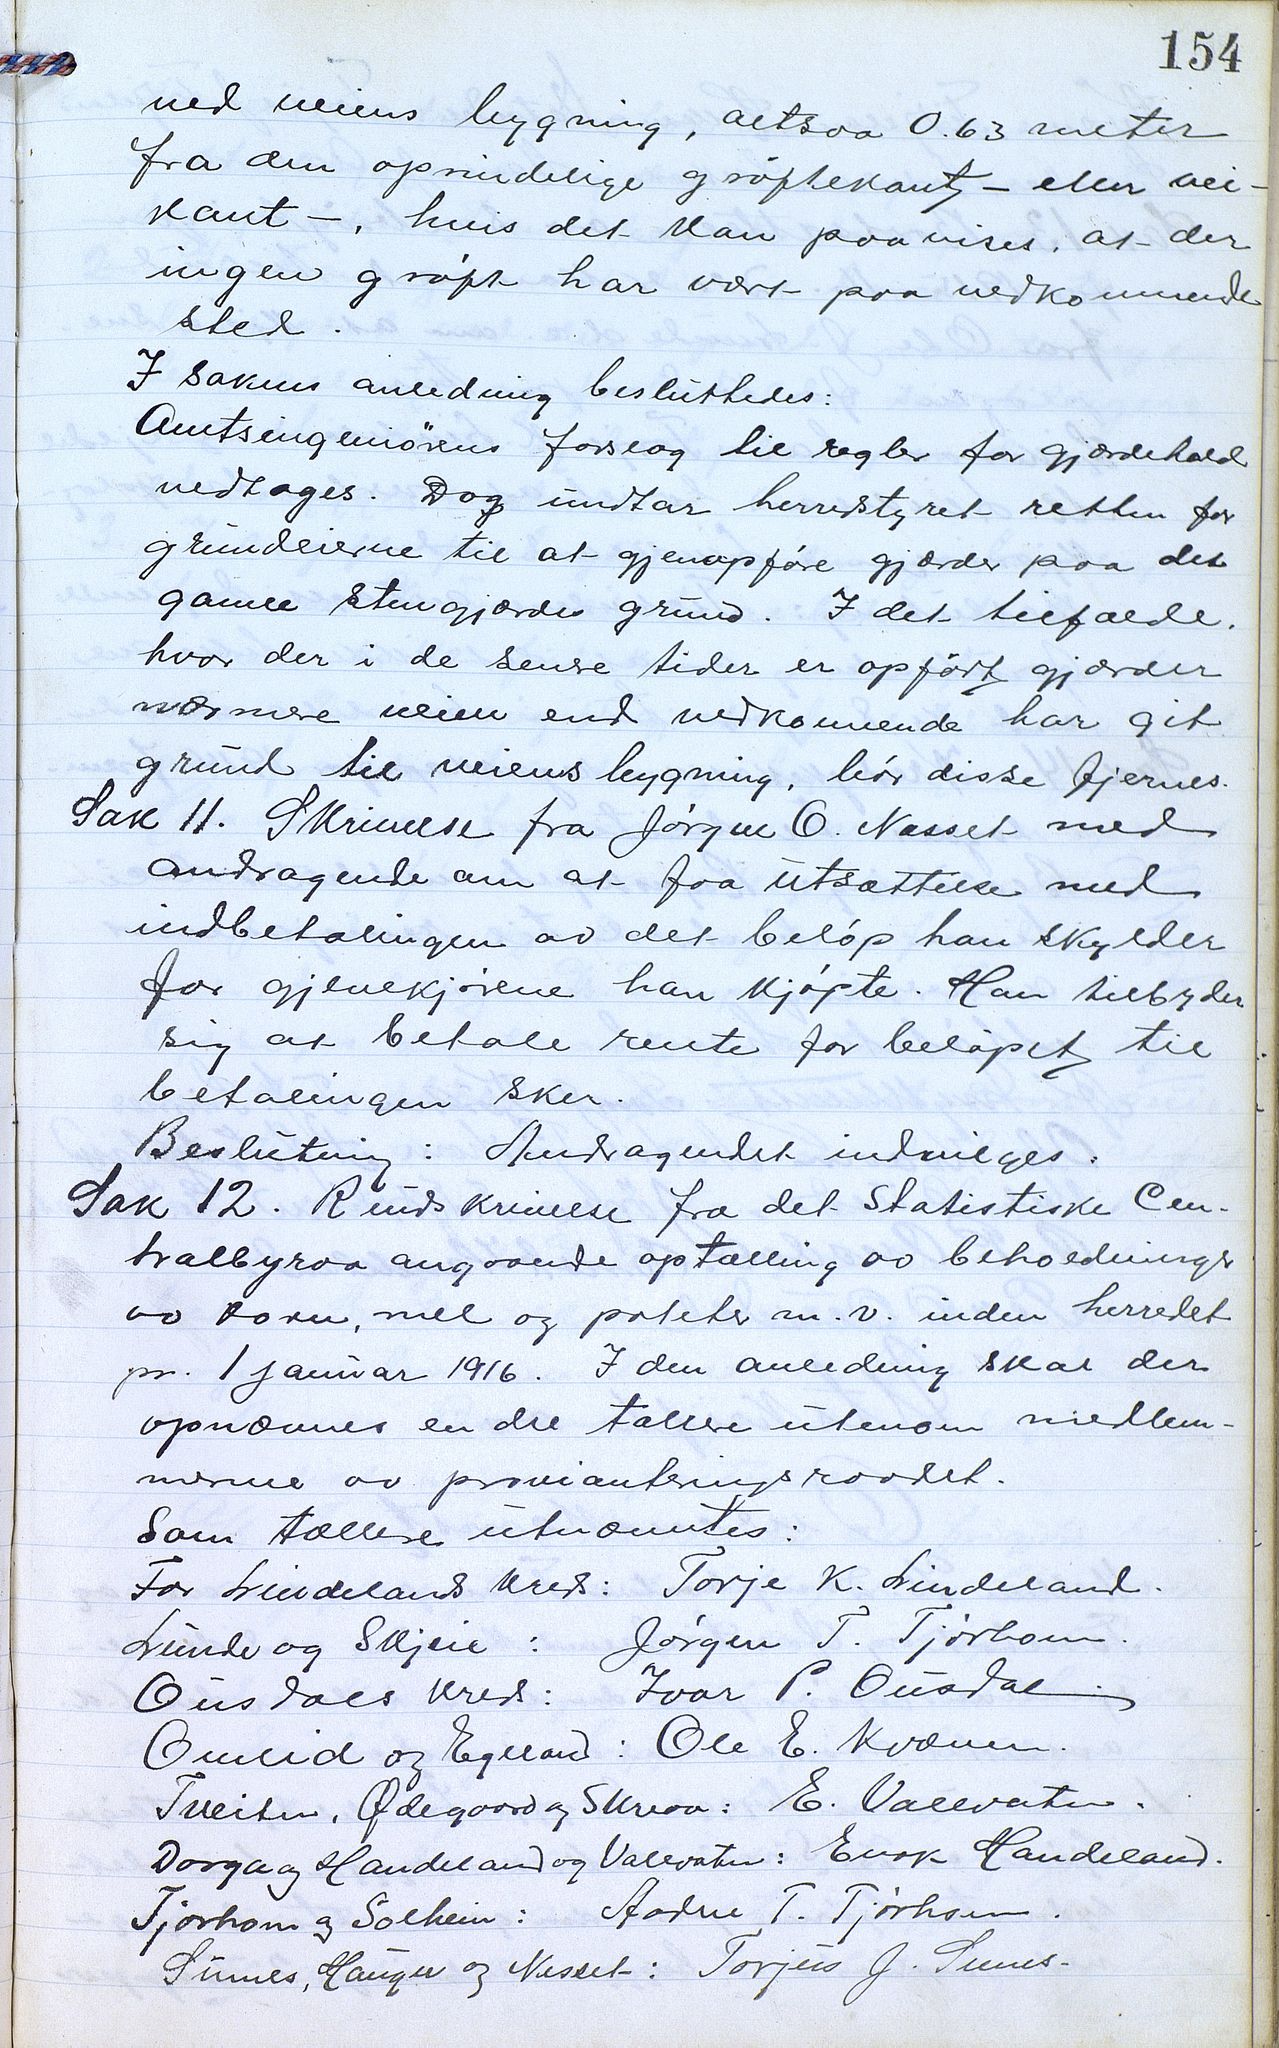 154
ved veiens bygning, altsaa 0.63 meter
fra den oprindelige grøftekant – eller vei-
kant –, hvis det kan paavises, at der
ingen grøft har vært paa vedkommende
sted.
I sakens anledning besluttedes:
Amtsingeniørens forslag til regler for gjærdehold
vedtages. Dog undtar herredstyret retten for
grundeierne til at gjenopføre gjærder paa det
gamle stengjærdes grund. I det tilfælde,
hvor der i de senere tider er opført gjærder
nærmere veien end vedkommende har git
grund til veiens bygning, bør disse fjernes.
Sak 11. Skrivelse fra Jørgen O. Nesset med
andragende om at faa utsættelse med
indbetalingen av det beløp han skylder
for gjenekjørene han kjøpte. Han tilbyder
sig at betale rente for beløpet til
betalingen sker.
Beslutning: Andragendet indvilges.
Sak 12. Rundskrivelse fra det Statistiske Cen-
tralbyraa angaaende optælling av beholdninger
av korn, mel og poteter m.v. inden herredet
pr. 1 januar 1916. I den anledning skal der
opnævnes en del tællere utenom medlem-
merne av provianteringsraadet.
Som tællere utnævntes:
For Lindelands kreds: Torje K. Lindeland.
Lunde og Skjeie: Jørgen T. Tjørhom.
Ousdals kreds: Ivar P. Ousdal.
Omlid og Egeland: Ole E. Kvæven.
Tveiten, Ødegaard og Skreaa: E. Vallevatn.
Dorga og Handeland og Vallevatn: Enok Handeland.
Tjørhom og Solheim: Aadne T. Tjørhom.
Sines, Haugen og Nesset: Torjus J. Sines.